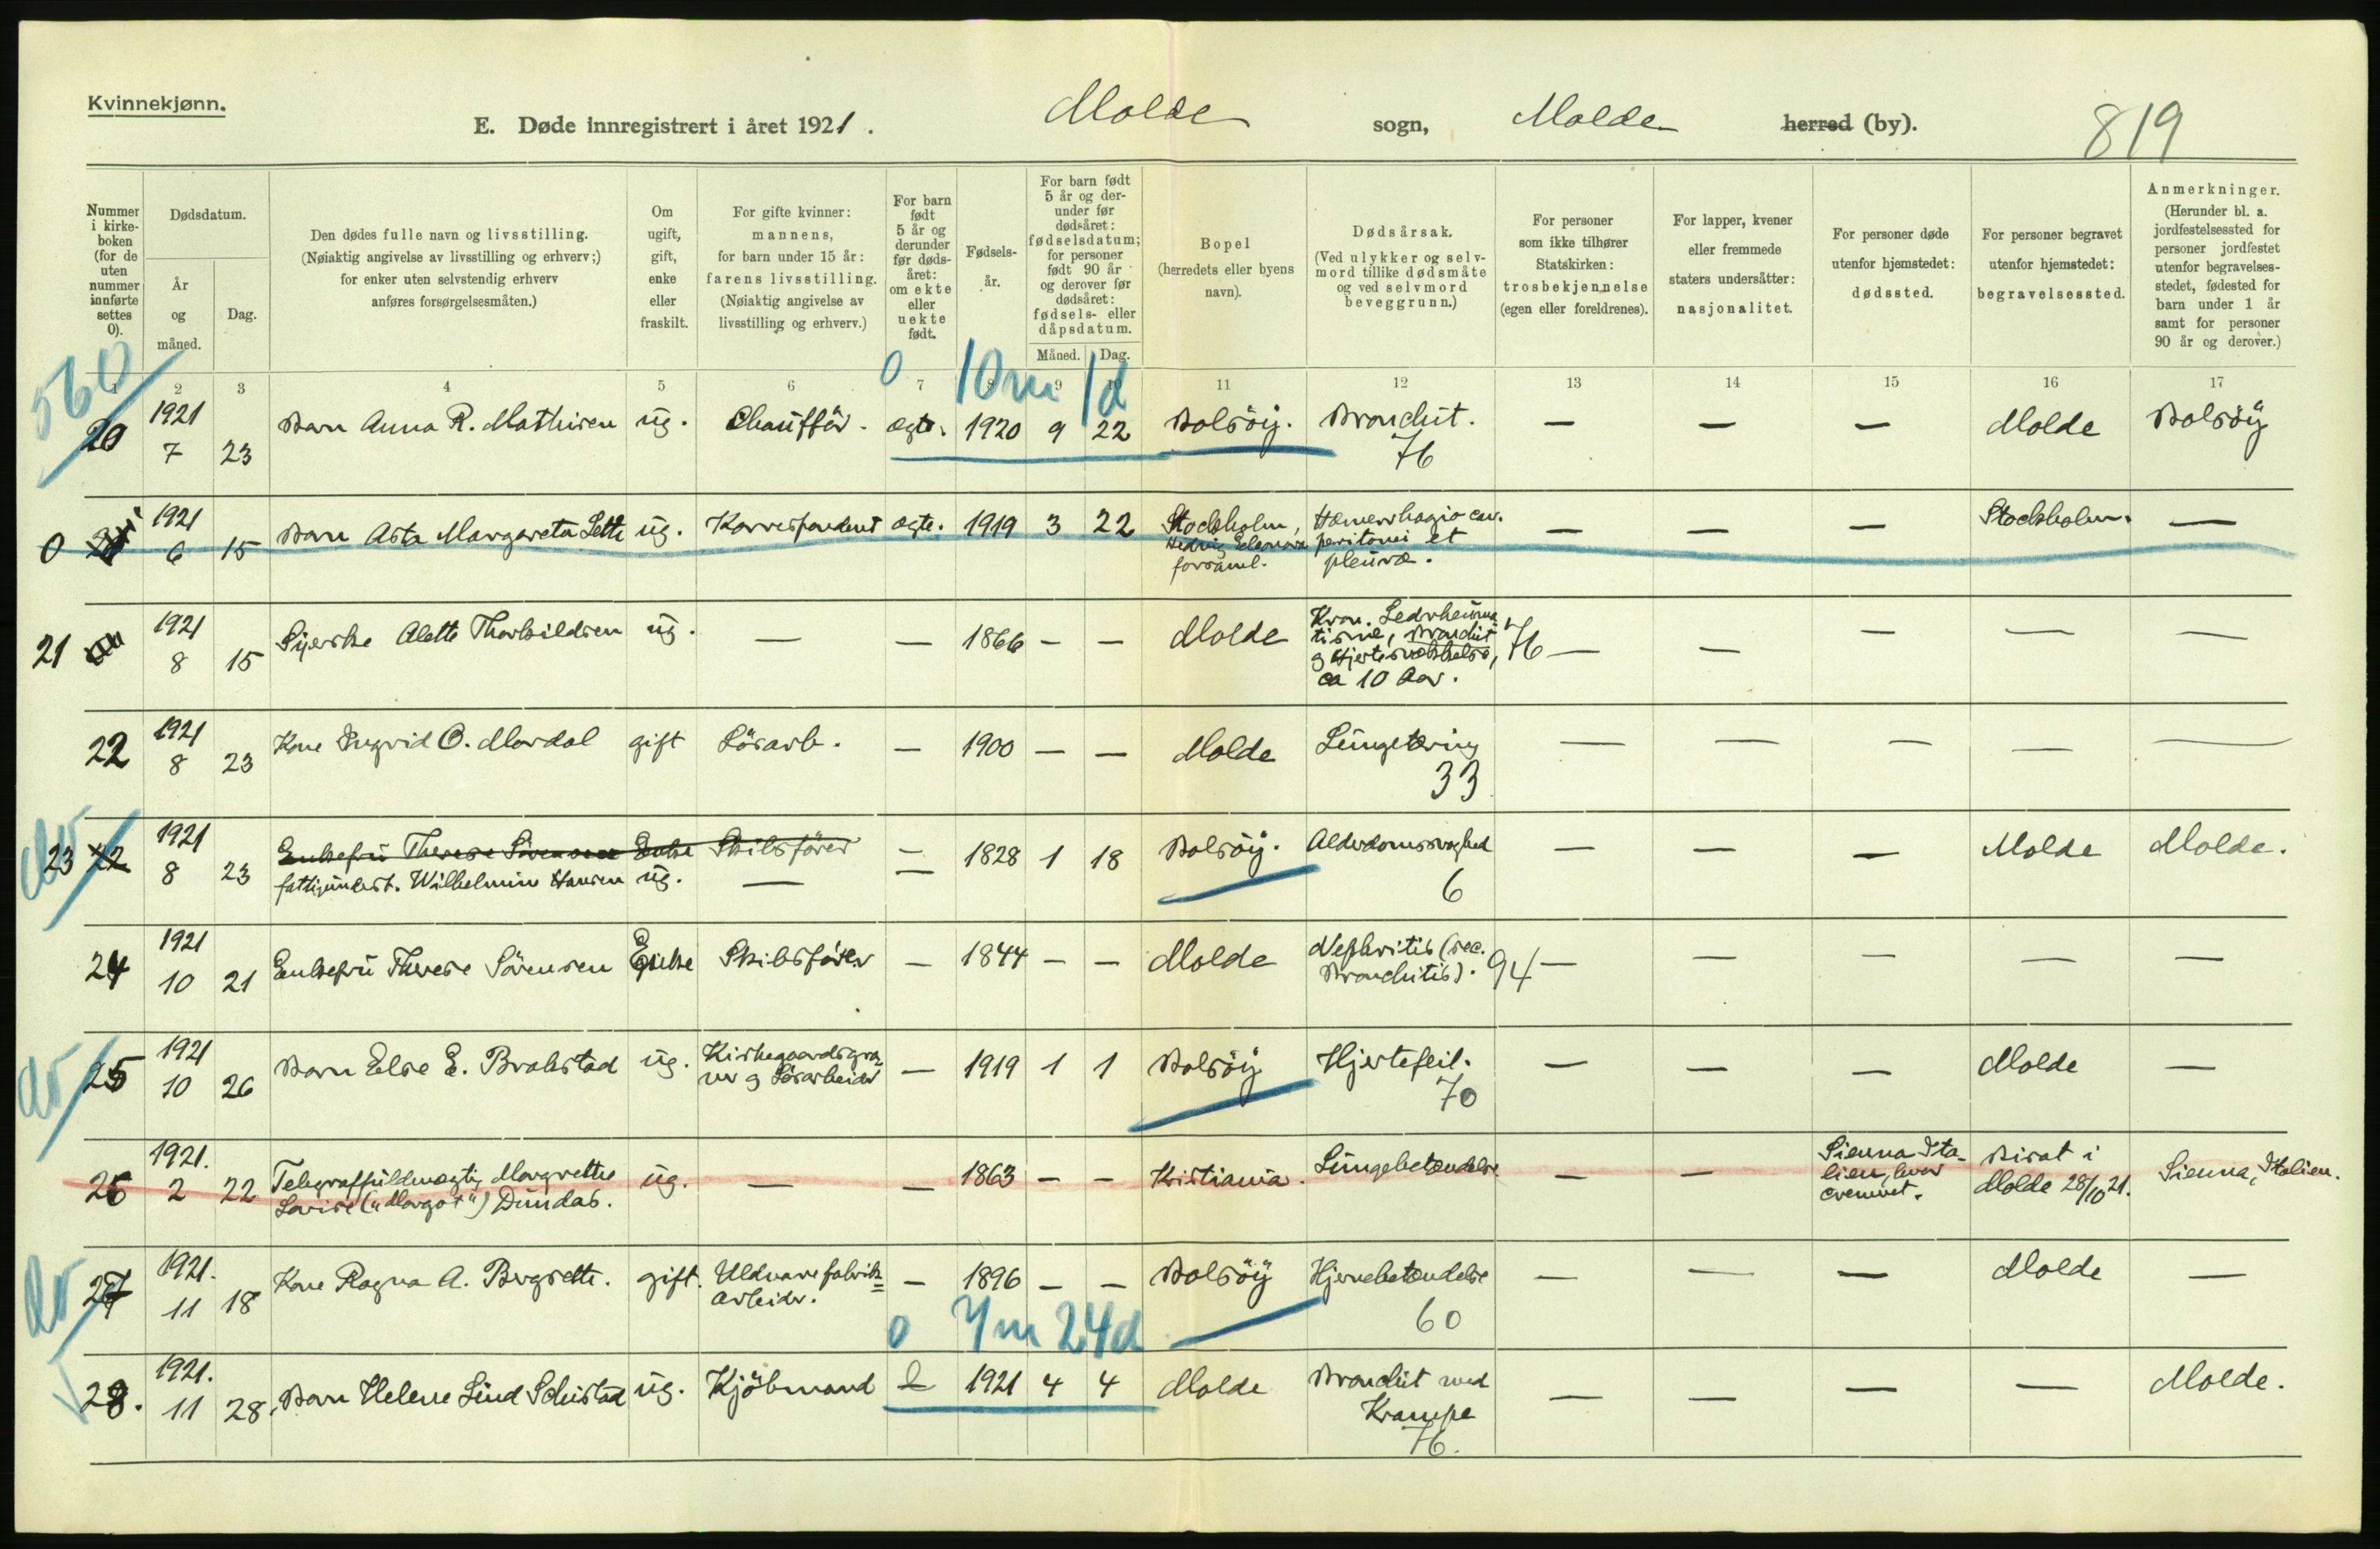 Kvinnekjønn.
E. Døde innregistrert i året 1921. Molde sogn, Molde herred (by). 819
Nummer i kirke-boken (for de uten nummer innførte settes 0).
Dødsdatum.
År og måned.
Dag.
Den dødes fulle navn og livsstilling.
(Nøiaktig angivelse av livsstilling og erhverv;)
for enker uten selvstendig erhverv
anføres forsørgelsesmåten.)
Om ugift, gift, enke eller fraskilt.
For gifte kvinner:
mannens,
for barn under 15 år:
farens livsstilling.
(Nøiaktig angivelse av
livsstilling og erhverv.)
For barn født 5 år og derunder før døds-året: om ekte eller uekte født.
Fødsels-
år.
For barn født
5 år og der-
under før
dødsåret:
fødselsdatum;
for personer
født 90 år
og derover før
dødsåret:
fødsels- eller
dåpsdatum.
Måned. Dag.
Bopel
(herredets eller byens
navn).
Dødsårsak.
(Ved ulykker og selv-
mord tillike dødsmåte
og ved selvmord
beveggrunn.)
For personer
som ikke tilhører
Statskirken:
trosbekjennelse
(egen eller foreldrenes).
For lapper, kvener
eller fremmede
staters undersåtter:
nasjonalitet.
For personer døde
utenfor hjemstedet:
dødssted.
For personer begravet
utenfor hjemstedet:
begravelsessted.
Anmerkninger.
(Herunder bl. a.
jordfestelsessted for
personer jordfestet
utenfor begravelses-
stedet, fødested for
barn under 1 år
samt for personer
90 år og derover.)
560 0 10 m 1 d
1 2 3 4 5 6 7 8 9 10 11 12 13 14 15 16 17
20 1921 7 23 Barn Anna R. Mathisen ug. Chaufför. ægte. 1920 9 22 Bolsöy. Bronchit. 76 — — — Molde Bolsöy
0 1921 6 15 Barn Asta Margareta Sette ug. Korrespondent ægte. 1919 3 22 Stockholm, Hedvig Eleonora församl. Hæmorrhagia cav. peritonei et pleuræ. — — — Stockholm. —
21 1921 8 15 Syerske Alette Thorkildsen ug. — — 1866 — — Molde Kron. Ledrheuma-tisme, Bronchit og Hjertesvækkelse, ca 10 Aar. 76 — — — — —
22 1921 8 23 Kone Ingrid O. Mordal gift Lösarb. — 1900 — — Molde Lungetæring 33 — — — — —
23 22 1921 8 23 Enkefru Therese Sörensen Enke Skibsförer —
fattigunderst. Wilhelmine Hansen ug. — — 1828 1 18 Bolsöy. Alderdomssvaghed 6 — — — Molde Molde.
24 1921 10 21 Enkefru Therese Sörensen Enke Skibsförer — 1844 — — Molde Nephritis (sec. Bronchitis). 94 — — — — —
25 1921 10 26 Barn Else E. Brakstad ug. Kirkegaardsgra-ver og Lösarbeider — 1919 1 1 Bolsöy Hjertefeil. 70 — — — Molde —
26 1921. 2 22 Telegraffuldmægtig Margrethe Lovise („Margot“) Dundas. ug. — — 1863 — — Kristiania. Lungebetændelse — — Sienna Ita-lien, hvor cremeret. Bisat i Molde 28/10 21. Sienna, Italien.
27 1921. 11 18 Kone Ragna A. Bergsette. gift. Uldvarefabrik-arbeider. — 1896 — — Bolsöy Hjernebetændelse 60 — — — Molde —
0 7 m 24 d
28. 1921. 11 28. Barn Helene Lind Schistad ug. Kjöbmand 1921 4 4 Molde Bronchit med Krampe 76. — — — — Molde.